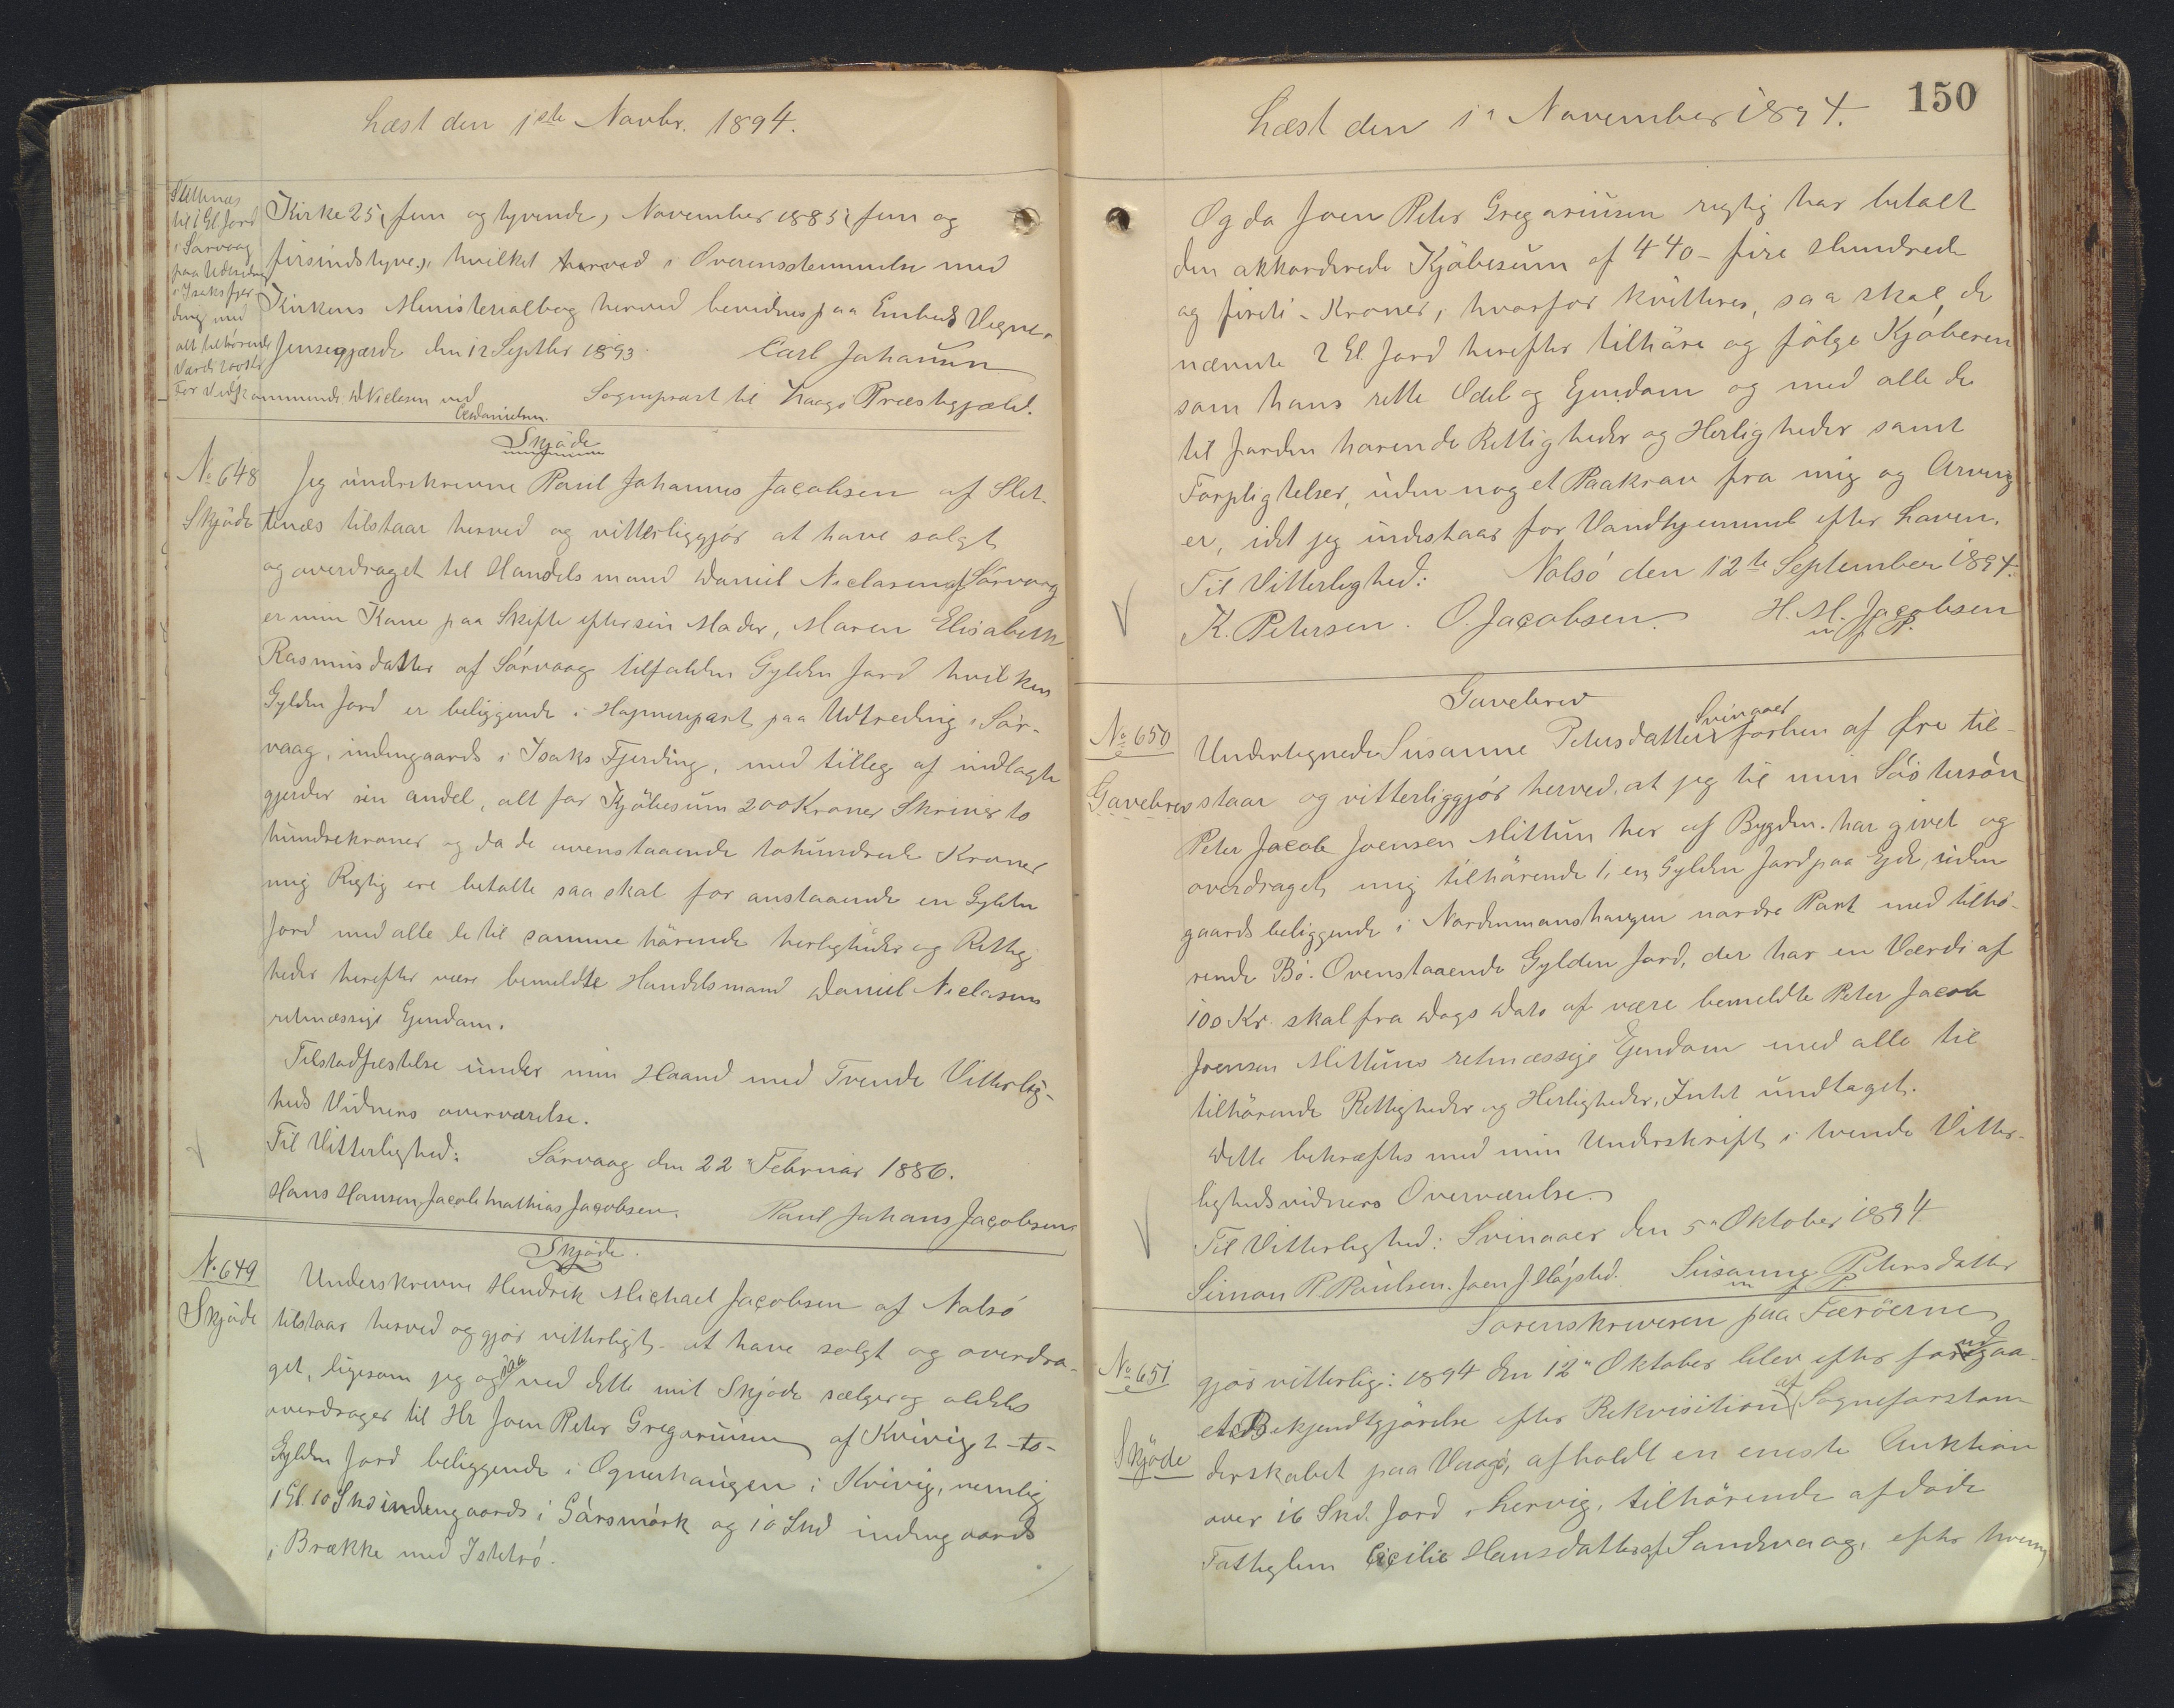 Læst den 1ste Novbr. 1894.
til 1 Gl. Jord
i Sørvaag
paa Udtreding
i Isaks Fjer-
ding med
alt tilhørende
Værdi 200 Kr
For Vedkommende D Niclasen ved
Kirke 25 (fem og tyvende) November 1885 (fem og
firsindstyve), hvilket herved i Overensstemmelse med
Kirkens Ministerialbog herved bevidnes paa Embeds Vegne.
Jensegjærde den 12 Septbr 1893. Carl Johansen
Sognepræst til Vaagø Præstegjæld.
Skjøde
No 648
Skjøde
Jeg undrskrevne Paul Johannes Jacobsen af Slet-
tenæs tilstaar herved og vitterliggjør at have solgt
og overdraget til Handelsmand Daniel Niclasen af Sørvaag
er min Kone paa Skifte efter sin Moder, Maren Elisabeth
Rasmusdatter af Sørvaag tilfalden Gylden Jord hvilken
Gylden Jord er beliggende i Høgmerepart paa Udtreding i Sør-
vaag, indengaards i Isaks Fjerding, med tilleg af indlagte
gjerder sin andel, alt for Kjøbesum 200 Kroner Skriver to
hundrekroner og da de ovenstaaende tohundrede Kroner
mig Rigtig ere betalte saa skal for anstaaende en Gylden
Jord med alle de til samme hørende herligheder og Rettig
heder herefter være bemeldte Handelsmand Daniel Niclasens
retmæssige Ejendom.
Tilstadfæstelse under min Haand med Tvende Vitterlig-
heds Vidners overværelse.
Til Vitterlighed: Sørvaag den 22 Februar 1886.
Hans Hansen, Jacob Mathias Jacobsen. Paul Johans Jacobsen
Skjøde.
No 649
Skjøde
Underskrevne Hendrik Michael Jacobsen af Nolsø
tilstaar herved og gjør vitterligt at have solgt og overdra-
get, ligesom jeg ogsaa ved dette mit Skjøde sælger og aldeles
overdrager til Hr Joen Peter Gregoriusen af Kvivig 2 -to-
Gylden Jord beliggende i Ognerhaugen i Kvivig, nemlig
1 Gl. 10 Skd indengaards i Gársmørk og 10 Skd indengaards
i Brække med
Læst den 1" November 1894. 150
Og da Joen Peter Gregoriusen rigtig har betalt
den akkorderede Kjøbesum af 440 - fire Hundrede
og firti - Kroner, hvorfor kvitteres, saa skal de
nævnte 2 Gl. Jord herefter tilhøre og følge Kjøberen
som hans rette Odel og Ejendom og med alle de
til Jorden havende Rettigheder og Herligheder samt
Forpligtelser, uden noget Paakrav fra mig og Arving
er, idet jeg indestaar for Vandhjemmel efter Loven.
Til Vitterlighed: Nolsø den 12te September 1894.
K. Petersen. O. Jacobsen. H. M. Jacobsen
m f P.
Gavebrev
No 650
Gavebrev
Undertegnede Susanne Petersdatter Svinaaer forhen af Øre til-
staar og vitterliggjør herved, at jeg til min Søstersøn
Peter Jacob Joensen Mittun her af Bygden har givet og
overdraget mig tilhørende 1, en Gylden Jord paa Ejde, inden
gaards beliggende i Nordenmanshaugen nordre Part med tilhø-
rende Bø. Ovenstaaende Gylden Jord, der har en Værdi af
100 Kr. skal fra Dags Dato af være bemeldte Peter Jacob
Joensen Mittuns retmæssige Ejendom med alle til
tilhørende Rettigheder og Herligheder, Intet undtaget.
Dette bekræftes med min Underskrift i tvende Vitter-
lighedsvidners Overværelse.
Til Vitterlighed: Svinaaer den 5" Oktober 1894
Simon P. Poulsen. Joen J. Højsted. Susanne Petersdatter
m f P
Sorenskriveren paa Færöerne
No 651
Skjøde
gjør vitterlig: 1894 den 12" Oktober blev efter forudgaa-
et Bekjendtgjørelse efter Rekvisition af Sogneforstan-
derskabet paa Vaagø, afholdt en eneste Auktion
over 16 Skd. Jord i Sørvig, tilhørende afdøde
Fattiglem Cicilie Hansdatter af Sandevaag, efter hvem